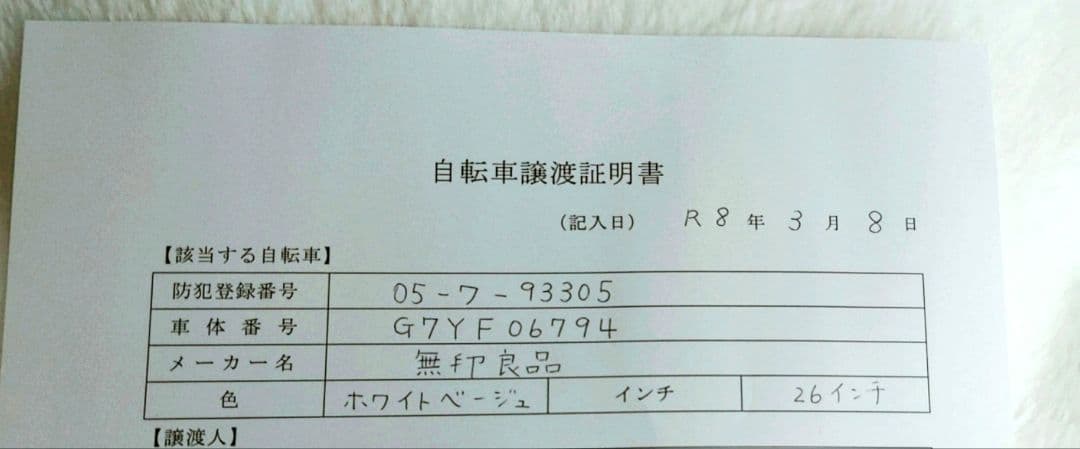 自転車譲渡証明書
（記入日） R8年 3月 8日
【該当する自転車】
防犯登録番号 05-7-93305
車体番号 G7YF06794
メーカー名 無印良品
色 ホワイトベージュ インチ 26インチ
【譲渡人】